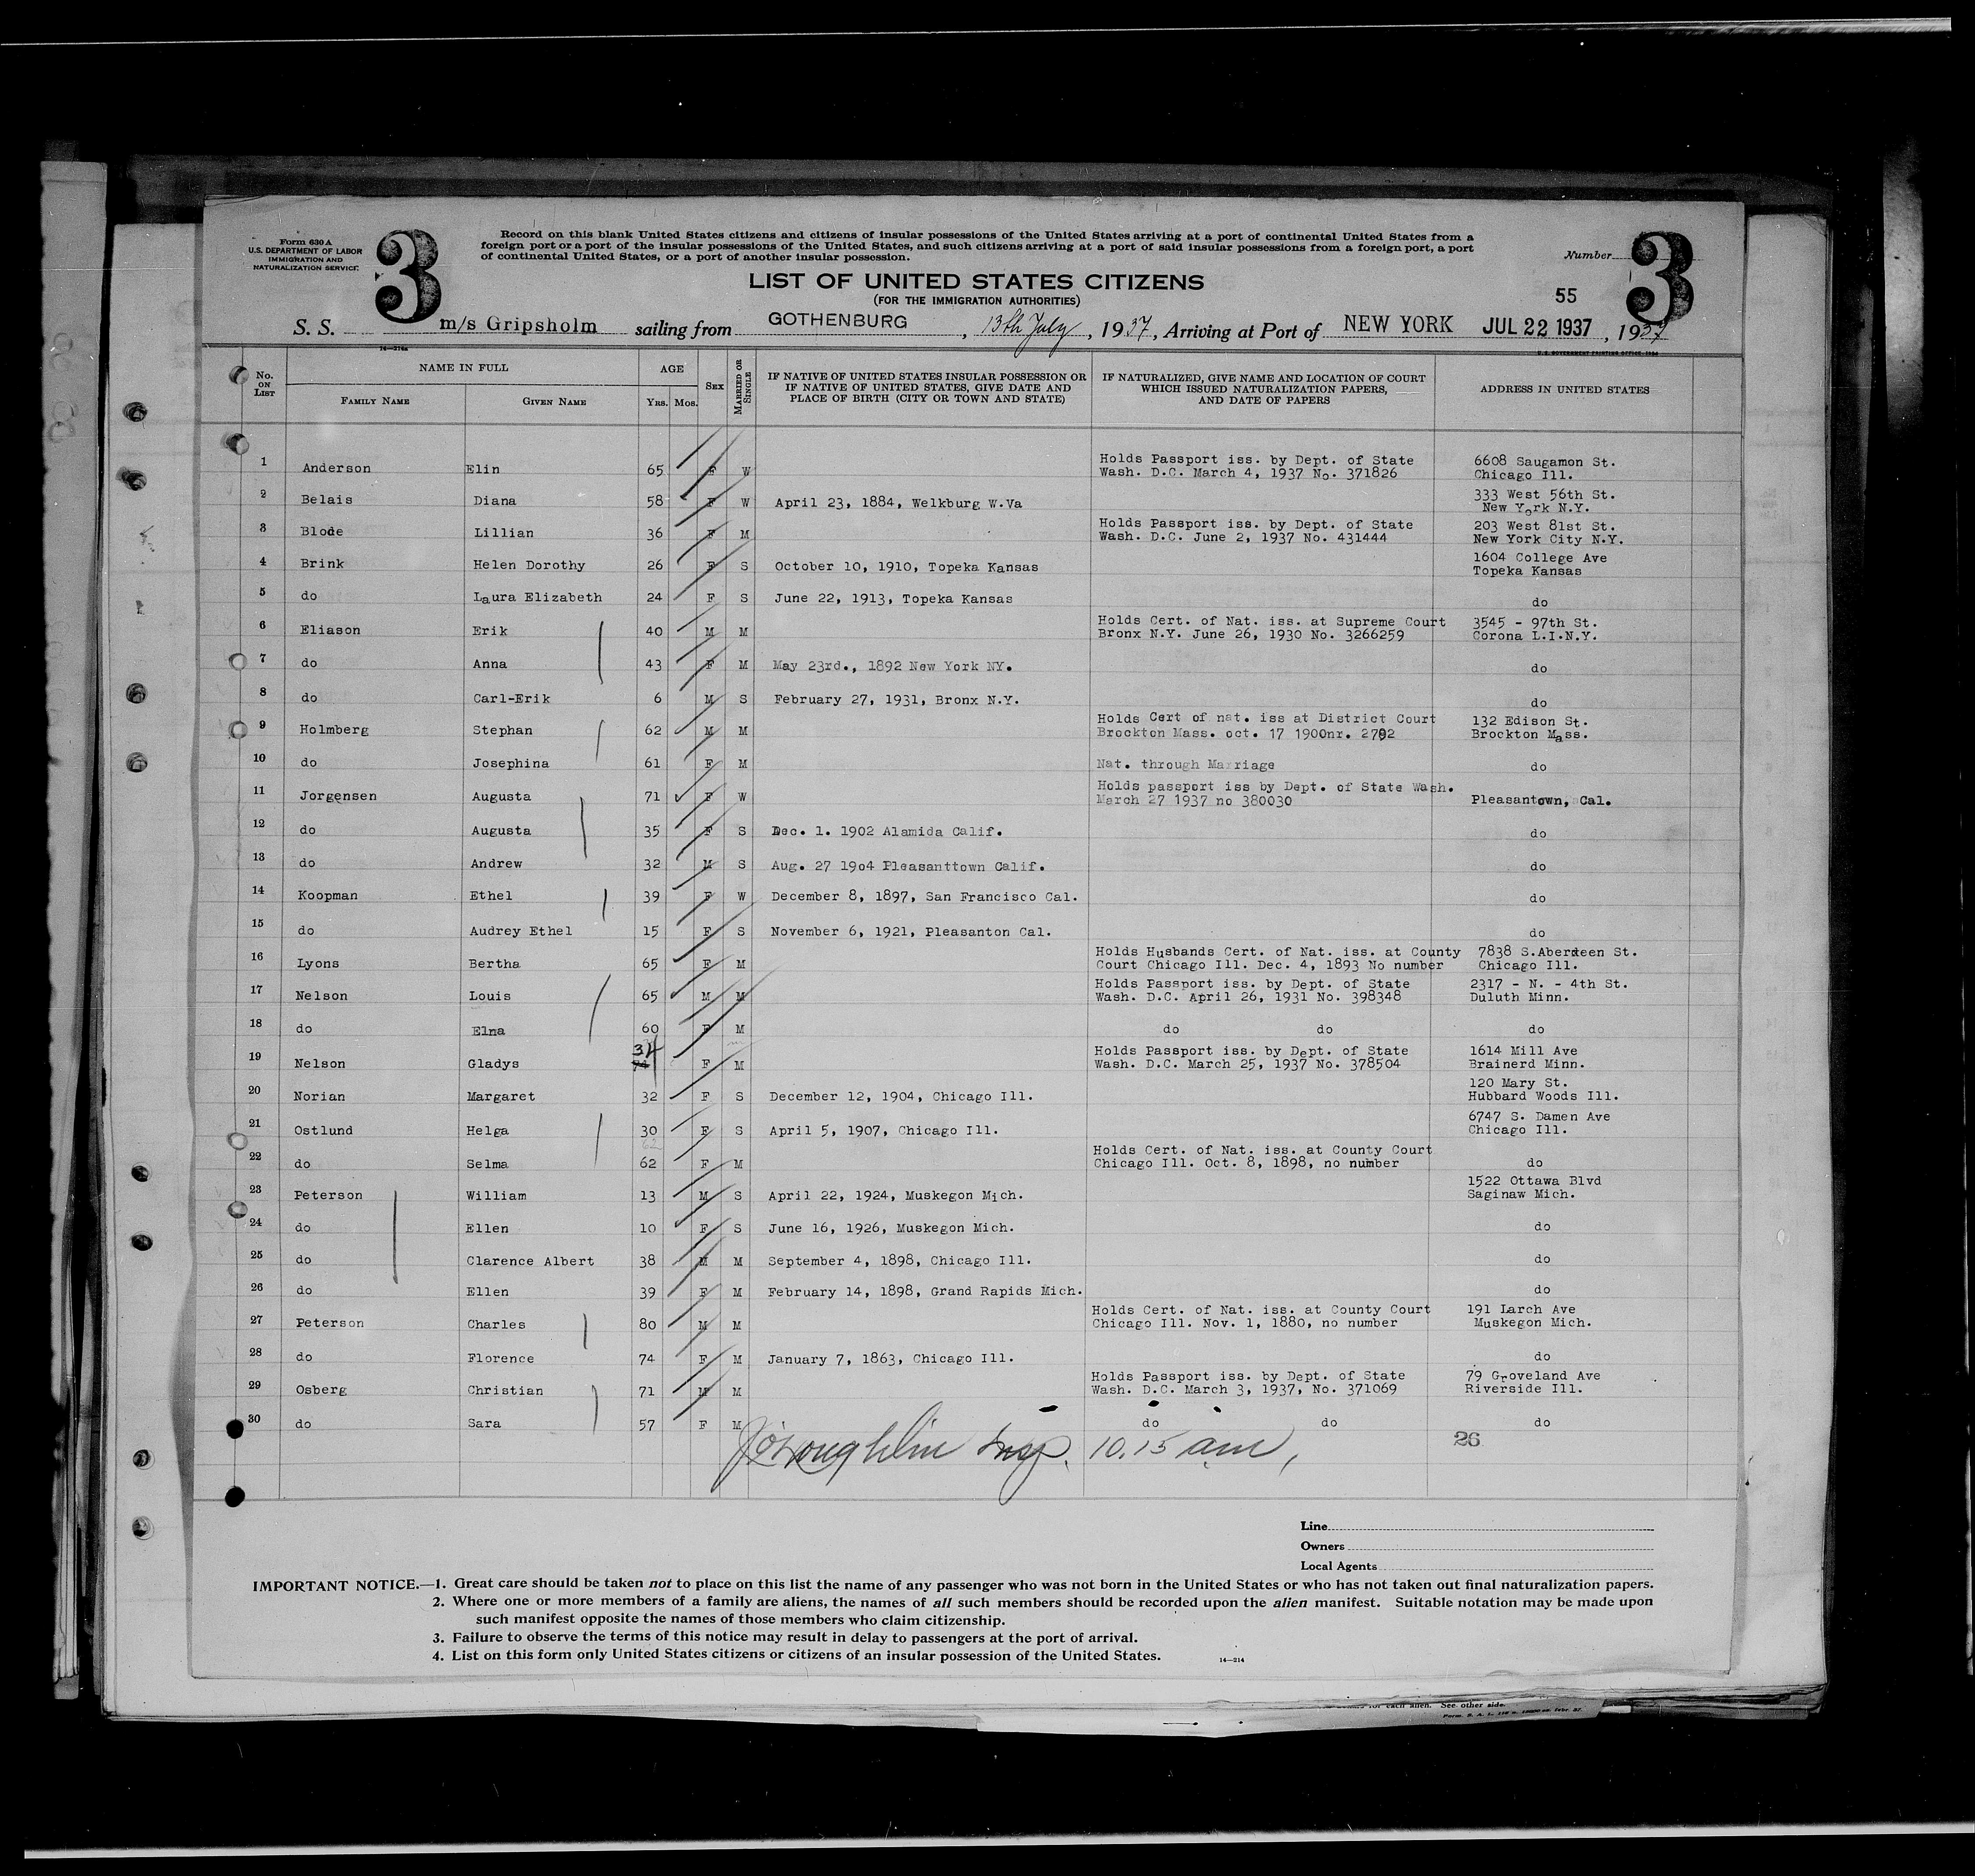 Form 630 A
U.S. DEPARTMENT OF LABOR
IMMIGRATION AND
NATURALIZATION SERVICE
3
Record on this blank United States citizens and citizens of insular possessions of the United States arriving at a port of continental United States from a
foreign port or a port of the insular possessions of the United States, and such citizens arriving at a port of said insular possessions from a foreign port, a port
of continental United States, or a port of another insular possession.
Number
3
LIST OF UNITED STATES CITIZENS
(FOR THE IMMIGRATION AUTHORITIES)
55
S. S. m/s Gripsholm sailing from GOTHENBURG, 13th July, 1937, Arriving at Port of NEW YORK JUL 22 1937, 1937
14—214a U.S. GOVERNMENT PRINTING OFFICE: 1934
No. ON LIST NAME IN FULL AGE SEX MARRIED OR SINGLE IF NATIVE OF UNITED STATES INSULAR POSSESSION OR IF NATIVE OF UNITED STATES, GIVE DATE AND PLACE OF BIRTH (CITY OR TOWN AND STATE) IF NATURALIZED, GIVE NAME AND LOCATION OF COURT WHICH ISSUED NATURALIZATION PAPERS, AND DATE OF PAPERS ADDRESS IN UNITED STATES
FAMILY NAME GIVEN NAME YRS. MOS.
1 Anderson Elin 65 F W Holds Passport iss. by Dept. of State Wash. D.C. March 4, 1937 No. 371826 6608 Saugamon St. Chicago Ill.
2 Belais Diana 58 F W April 23, 1884, Welkburg W.Va 333 West 56th St. New York N.Y.
3 Blode Lillian 36 F M Holds Passport iss. by Dept. of State Wash. D.C. June 2, 1937 No. 431444 203 West 81st St. New York City N.Y.
4 Brink Helen Dorothy 26 F S October 10, 1910, Topeka Kansas 1604 College Ave Topeka Kansas
5 do Laura Elizabeth 24 F S June 22, 1913, Topeka Kansas do
6 Eliason Erik 40 M M Holds Cert. of Nat. iss. at Supreme Court Bronx N.Y. June 26, 1930 No. 3266259 3545 - 97th St. Corona L.I.N.Y.
7 do Anna 43 F M May 23rd., 1892 New York NY. do
8 do Carl-Erik 6 M S February 27, 1931, Bronx N.Y. do
9 Holmberg Stephan 62 M M Holds Cert of nat. iss at District Court Brockton Mass. oct. 17 1900nr. 2792 132 Edison St. Brockton Mass.
10 do Josephina 61 F M Nat. through Marriage do
11 Jorgensen Augusta 71 F W Holds passport iss by Dept. of State Wash. March 27 1937 no 380030 Pleasantown, Cal.
12 do Augusta 35 F S Dec. 1. 1902 Alamida Calif. do
13 do Andrew 32 M S Aug. 27 19o4 Pleasanttown Calif. do
14 Koopman Ethel 39 F W December 8, 1897, San Francisco Cal. do
15 do Audrey Ethel 15 F S November 6, 1921, Pleasanton Cal. do
16 Lyons Bertha 65 F M Holds Husbands Cert. of Nat. iss. at County Court Chicago Ill. Dec. 4, 1893 No number 7838 S.Aberdeen St. Chicago Ill.
17 Nelson Louis 65 M M Holds Passport iss. by Dept. of State Wash. D.C. April 26, 1931 No. 398348 2317 - N. - 4th St. Duluth Minn.
18 do Elna 60 F M do do do
19 Nelson Gladys 34 F M Holds Passport iss. by Dept. of State Wash. D.C. March 25, 1937 No. 378504 1614 Mill Ave Brainerd Minn.
20 Norian Margaret 32 F S December 12, 1904, Chicago Ill. 120 Mary St. Hubbard Woods Ill.
21 Ostlund Helga 30 F S April 5, 1907, Chicago Ill. 6747 S. Damen Ave Chicago Ill.
22 do Selma 62 F M Holds Cert. of Nat. iss. at County Court Chicago Ill. Oct. 8, 1898, no number do
23 Peterson William 13 M S April 22, 1924, Muskegon Mich. 1522 Ottawa Blvd Saginaw Mich.
24 do Ellen 10 F S June 16, 1926, Muskegon Mich. do
25 do Clarence Albert 38 M M September 4, 1898, Chicago Ill. do
26 do Ellen 39 F M February 14, 1898, Grand Rapids Mich. do
27 Peterson Charles 80 M M Holds Cert. of Nat. iss. at County Court Chicago Ill. Nov. 1, 1880, no number 191 Larch Ave Muskegon Mich.
28 do Florence 74 F M January 7, 1863, Chicago Ill. do
29 Osberg Christian 71 M M Holds Passport iss. by Dept. of State Wash. D.C. March 3, 1937, No. 371069 79 Groveland Ave Riverside Ill.
30 do Sara 57 F M do do do
J O'Loughlin Insp. 10.15 am, 26
Line
Owners
Local Agents
IMPORTANT NOTICE.—1. Great care should be taken not to place on this list the name of any passenger who was not born in the United States or who has not taken out final naturalization papers.
2. Where one or more members of a family are aliens, the names of all such members should be recorded upon the alien manifest. Suitable notation may be made upon
such manifest opposite the names of those members who claim citizenship.
3. Failure to observe the terms of this notice may result in delay to passengers at the port of arrival.
4. List on this form only United States citizens or citizens of an insular possession of the United States.
14—214
for each alien. See other side.